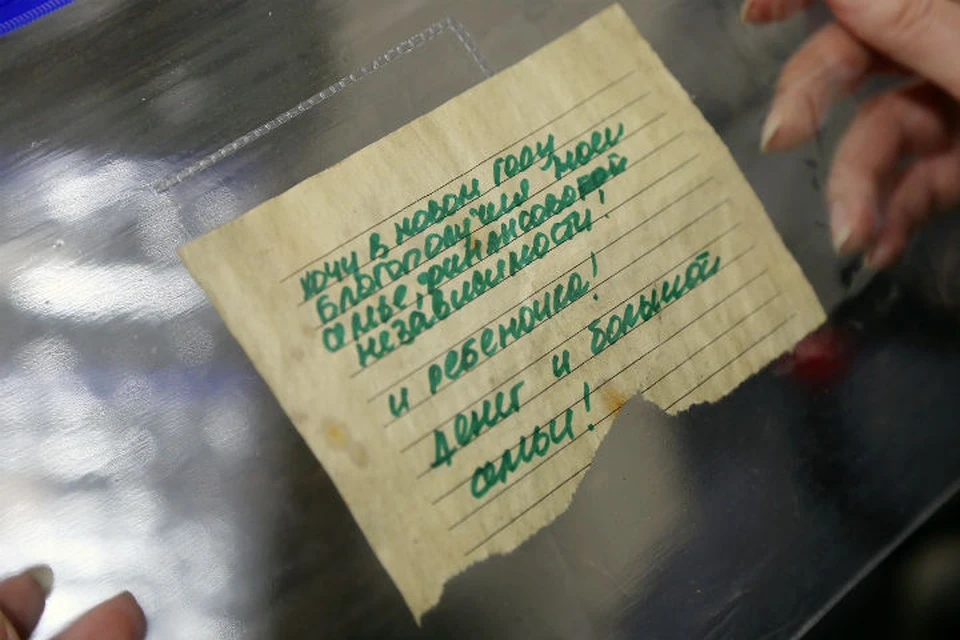 хочу в новом году
благополучия моей
семье, финансовой
независимости!
и ребеночка!
Денег и большой
семьи!